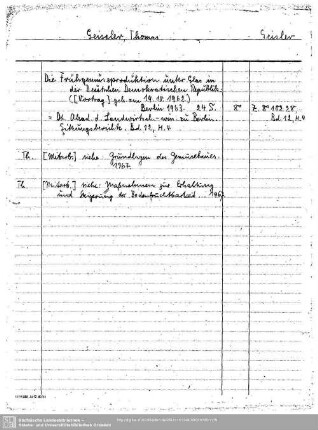 Geissler, Thomas Geisler
Die Frühgemüseproduktion unter Glas in
der Deutschen Demokratischen Republik.
([Vortrag] geh. am 19.10.1962.)
Berlin 1963. 24 S. 8° Z. 8° 182 28.
= Dt. Akad. d. Landwirtsch.-wiss. zu Berlin. Bd 12, H. 4
Sitzungsberichte. Bd 12, H. 4
Th. [Mitarb.] siehe Grundlagen des Gemüsebaues.
1967.
Th. [Mitarb.] siehe: Massnahmen zur Erhaltung
und Steigerung der Bodenfruchtbarkeit. 196